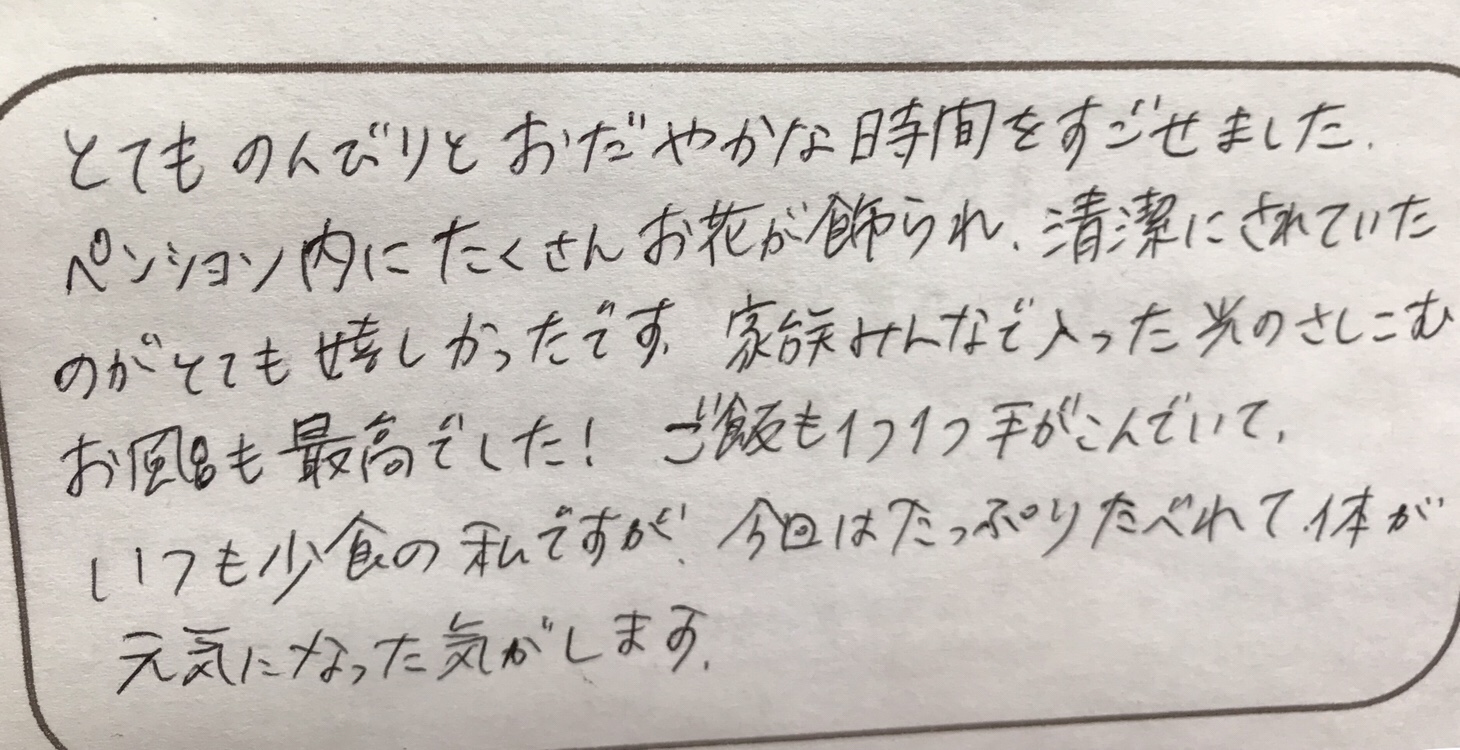 とてものんびりとおだやかな時間をすごせました.
ペンション内にたくさんお花が飾られ、清潔にされていた
のがとても嬉しかったです. 家族みんなで入った光のさしこむ
お風呂も最高でした! ご飯も1つ1つ手がこんでいて、
いつも少食の私ですが、今回はたっぷりたべれて体が
元気になった気がします.